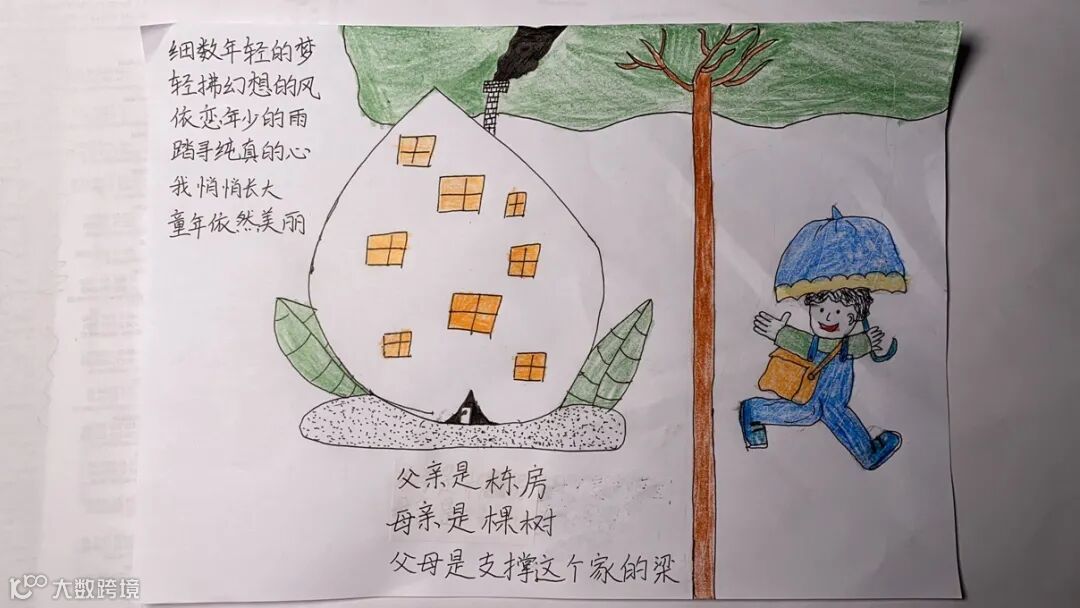 细数年轻的梦
轻拂幻想的风
依恋年少的雨
踏寻纯真的心
我悄悄长大
童年依然美丽
父亲是栋房
母亲是棵树
父母是支撑这个家的梁
大数跨境